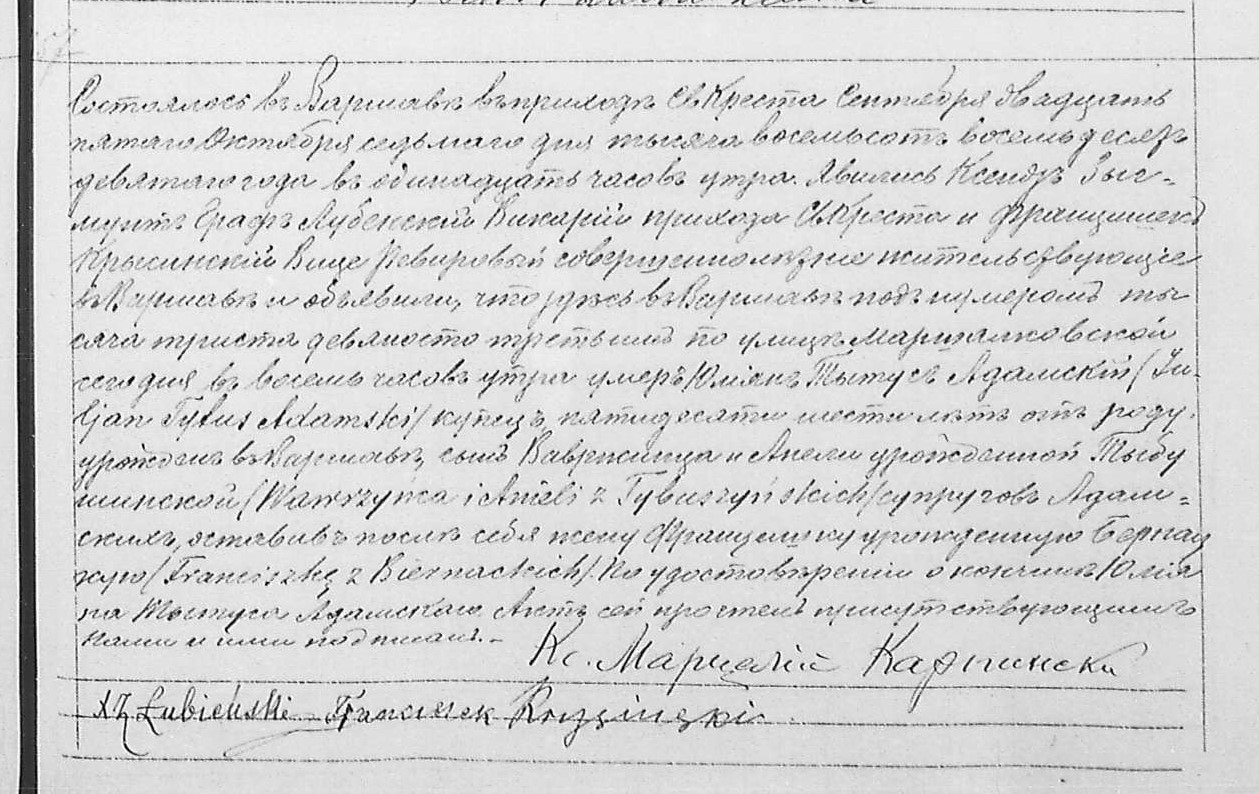 Состоялось въ Варшавѣ въ приходѣ Св Креста Сентября двадцать
пятаго Октября седьмаго дня тысяча восемьсотъ восемьдесятъ
девятаго года въ одинадцать часовъ утра. Явились Ксендзъ Зыг-
мунтъ Графъ Лубенскій Викарій прихода Св Креста и Францишекъ
Крысинскій Вице совершеннолѣтніе жительствующіе
въ Варшавѣ и объявили, что здѣсь въ Варшавѣ подъ нумеромъ ты
сяча триста девяносто третьимъ по улицѣ Маршалковской
сегодня въ восемь часовъ утра умеръ Юліянъ Тытусъ Адамскій /Ju-
ljan Tytus Adamski/ купецъ, пятидесяти шести лѣтъ отъ роду,
урожденъ въ Варшавѣ, сынъ Вавржинца и Анели урожденной Тыбу
шинской /Wawrzyńca i Anieli z Tybuszyńskich/ супруговъ Адам-
скихъ, оставивъ послѣ себя жену Францишку урожденную Бернац
кую /Franciszkę z Biernackich/ По удостовѣреніи о кончинѣ Юлія
на Тытуса Адамскаго Актъ сей прочтенъ присутствующимъ
нами и ими подписанъ.-
Кс. Марцелій Карпински
XZ Łubieński Franciszek Krysiński